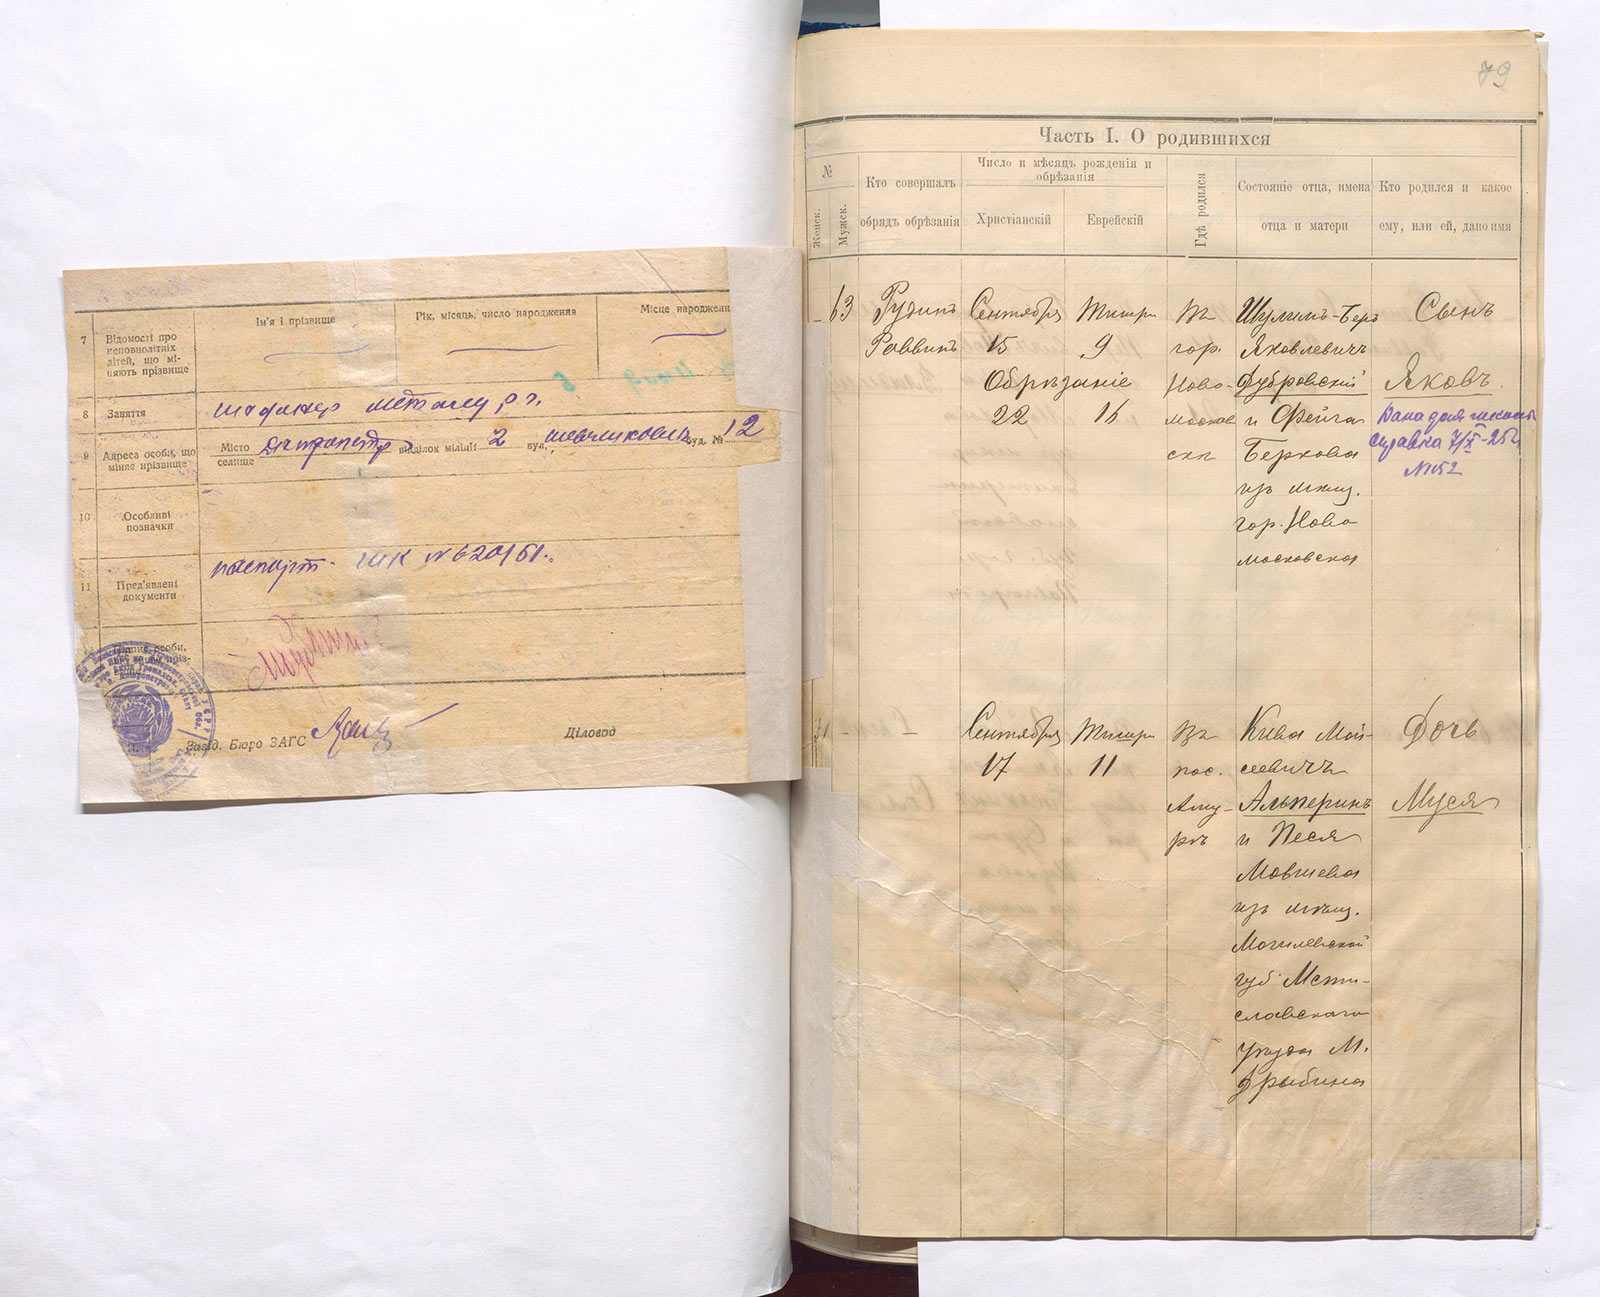 Ім'я і прізвище
Рік, місяць, число народження
Місце народженн
7
Відомості про
неповнолітніх
дітей, що мі-
няють прізвище
8
Заняття
9
Адреса особи, що
міняє прізвище
Місто
селище
відділок міліції 2 вул.
буд. № 12
10
Особливі
позначки
11
Пред'явлені
документи
паспорт. ШК № 620151.
Завід. Бюро ЗАГС
Діловод
79
Часть I. О родившихся
№
Женск.
Мужск.
Кто совершалъ
обрядъ обрѣзанія
Число и мѣсяцъ рожденія и
обрѣзанія
Христіанскій
Еврейскій
Гдѣ родился
Состояніе отца, имена
отца и матери
Кто родился и какое
ему, или ей, дано имя
63
Рудинъ
Раввинъ
Сентября
15
Обрѣзаніе
22
Тишри
9
16
Въ
гор.
Ново-
москов
скѣ
Шулимъ-Беръ
Яковлевичъ
Дубровскій
и Фейга
Беркова
изъ мѣщ.
гор. Ново
московска
Сынъ
Яковъ
справка
№ 152
Сентября
17
Тишри
11
Въ
пос.
Аму-
ръ
Кива Мой-
сеевичъ
Альперинъ
и Песя
Мовшева
изъ мѣщ.
Могилевской
губ Мсти-
славскаго
уѣзда М.
Дрыбина
Дочь
Муся